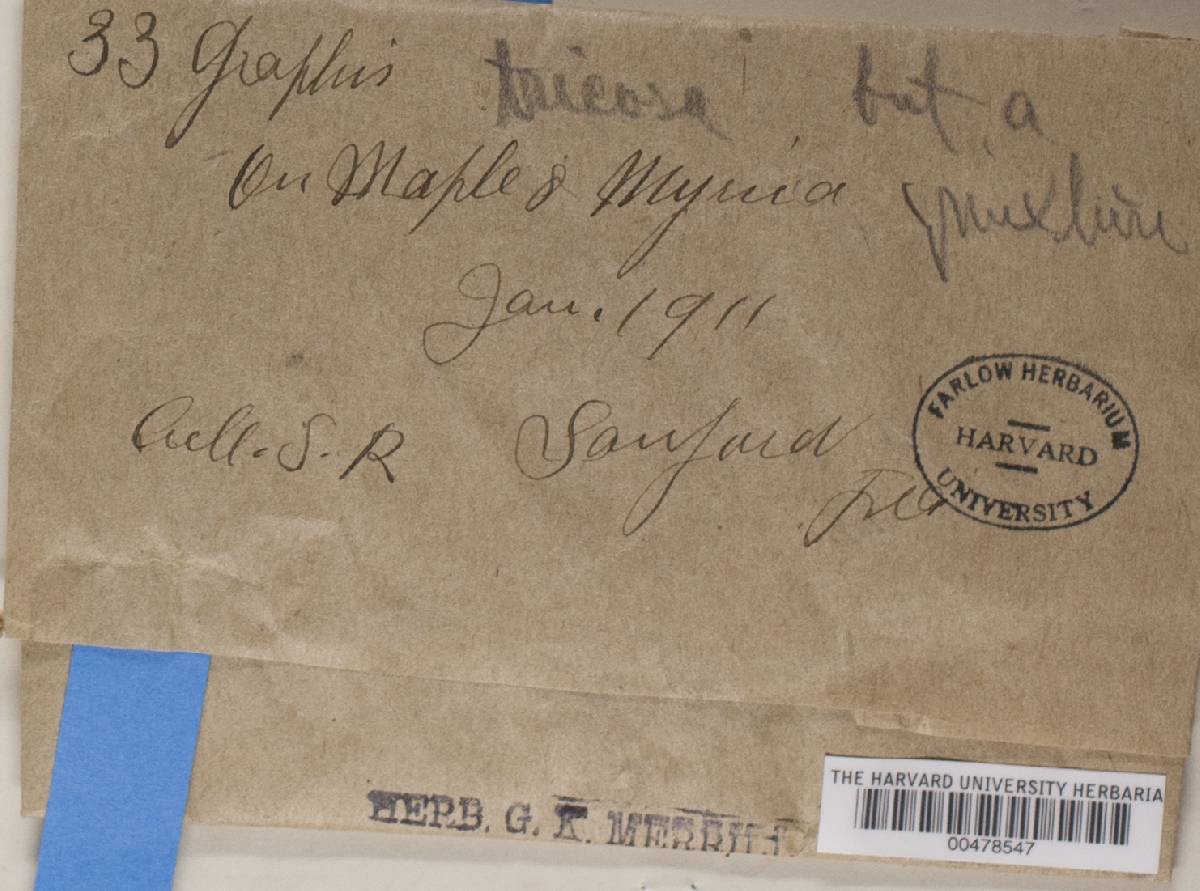 33 Graphis tricosa but a
mixture
On Maple & Myrica
Jan. 1911
Coll. S. R Sanford
Fla
FARLOW HERBARIUM
HARVARD
UNIVERSITY
HERB. G. K. MERRILL
THE HARVARD UNIVERSITY HERBARIA
00478547